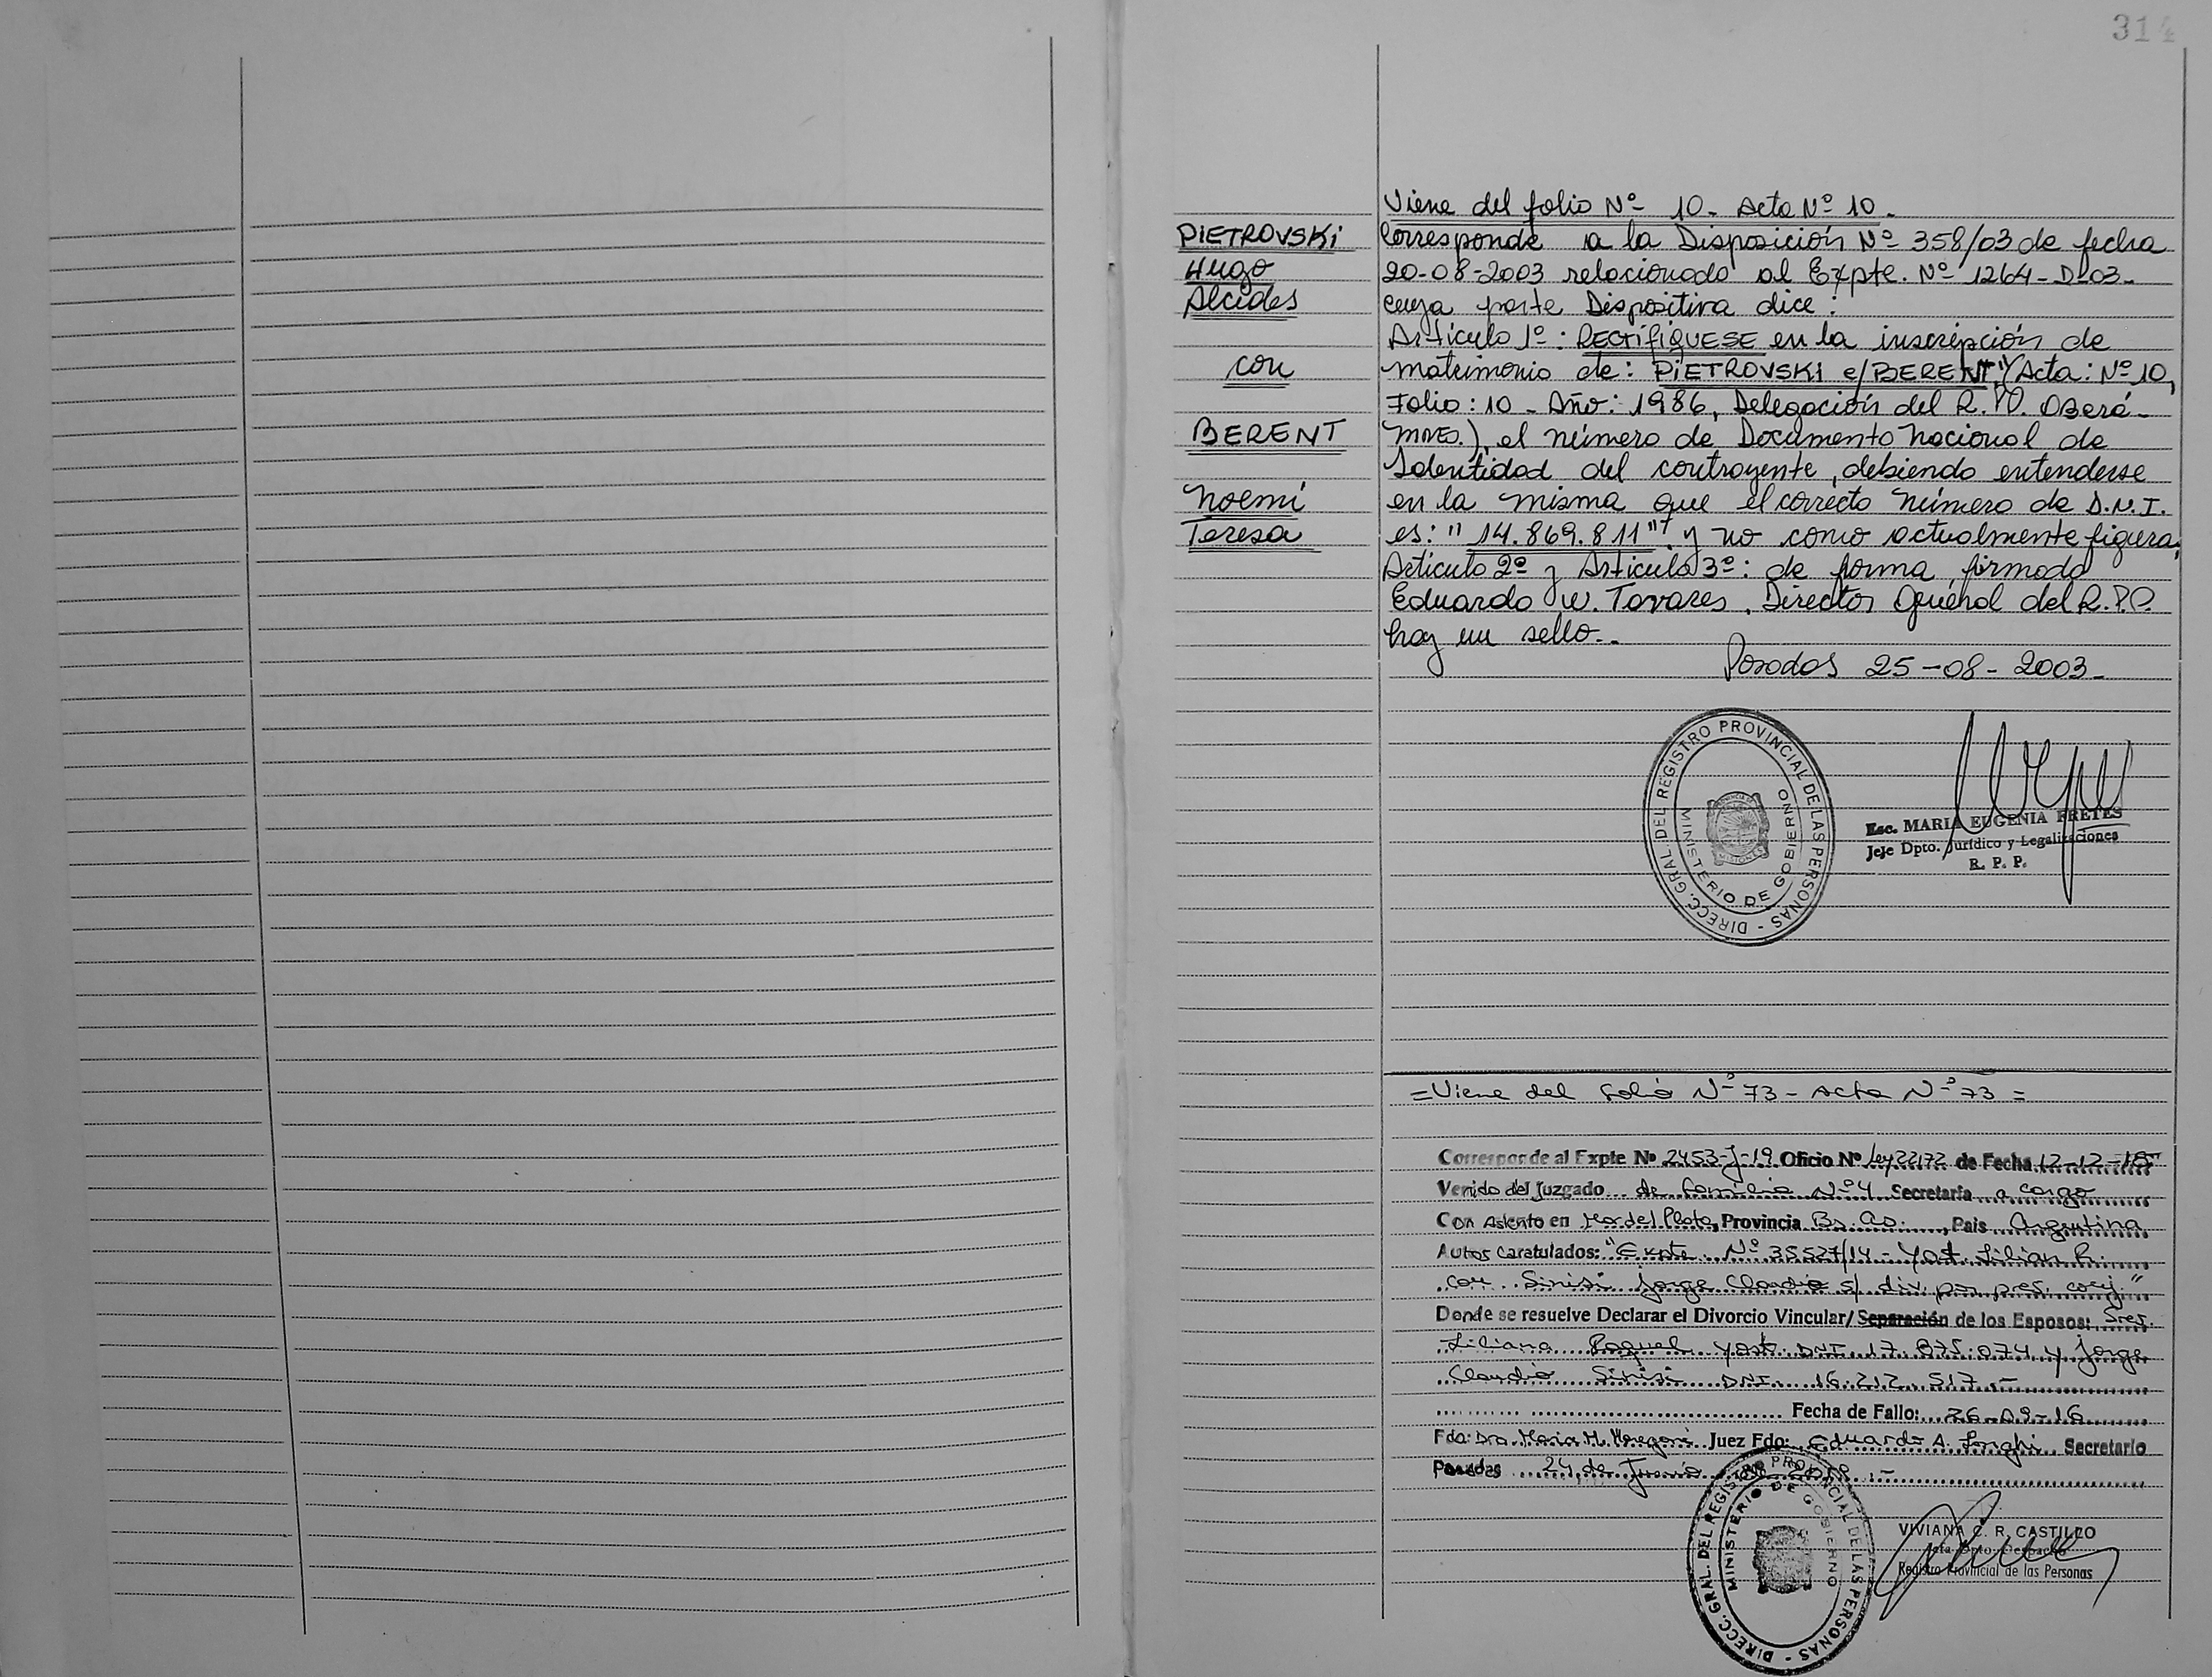 314
Viene del folio Nº 10 - Acta Nº 10 -
PIETROVSKI
Hugo
Alcides
con
BERENT
Noemí
Teresa
Corresponde a la Disposición Nº 358/03 de fecha
20-08-2003 relacionado al Expte. Nº 1264-D-03-
cuya parte Dispositiva dice:
Artículo 1º: RECTIFIQUESE en la inscripción de
matrimonio de: PIETROVSKI c/BERENT, Acta: Nº 10,
Folio: 10 - Año: 1986, Delegación del R.P. Oberá-
Mnes.), el número de Documento Nacional de
Identidad del contrayente, debiendo entenderse
en la misma que el correcto número de D.N.I.
es: "14.869.811" y no como actualmente figura;
Artículo 2º y Artículo 3º: de forma, firmado
Eduardo W. Tovares, Director General del R.P.P.
hay un sello.-
Posadas 25-08-2003-
DIRECC. GRAL. DEL REGISTRO PROVINCIAL DE LAS PERSONAS -
MINISTERIO DE GOBIERNO
PROVINCIA DE
MISIONES
Esc. MARIA EUGENIA FRETES
Jefe Dpto. Jurídico y Legalizaciones
R. P. P.
= Viene del folio Nº 73 - Acta Nº 73 =
Corresponde al Expte Nº 2453-J-19 Oficio Nº Ley 22172 de Fecha 12-12-18
Venido del Juzgado de Familia Nº 4 Secretaría a cargo
Con Asiento en Mar del Plata, Provincia Bs. As. , País Argentina
Autos Caratulados: "Expte. Nº 35527/14 - Yost Lilian R.
con Sinisi Jorge Claudio s/ div. por pres. conj."
Donde se resuelve Declarar el Divorcio Vincular/Separación de los Esposos: Sres.
Liliana Raquel Yost DNI 17.875.074 y Jorge
Claudio Sinisi DNI 16.212.517.-
Fecha de Fallo: 26-09-16
Fdo: Dra. Maria M. Juez Fdo: Eduardo A. Secretario
Posadas 24 de
DIRECC. GRAL. DEL REGISTRO PROVINCIAL DE LAS PERSONAS -
MINISTERIO DE GOBIERNO
VIVIANA C. R. CASTILLO
Jefa Dpto. Despacho
Registro Provincial de las Personas